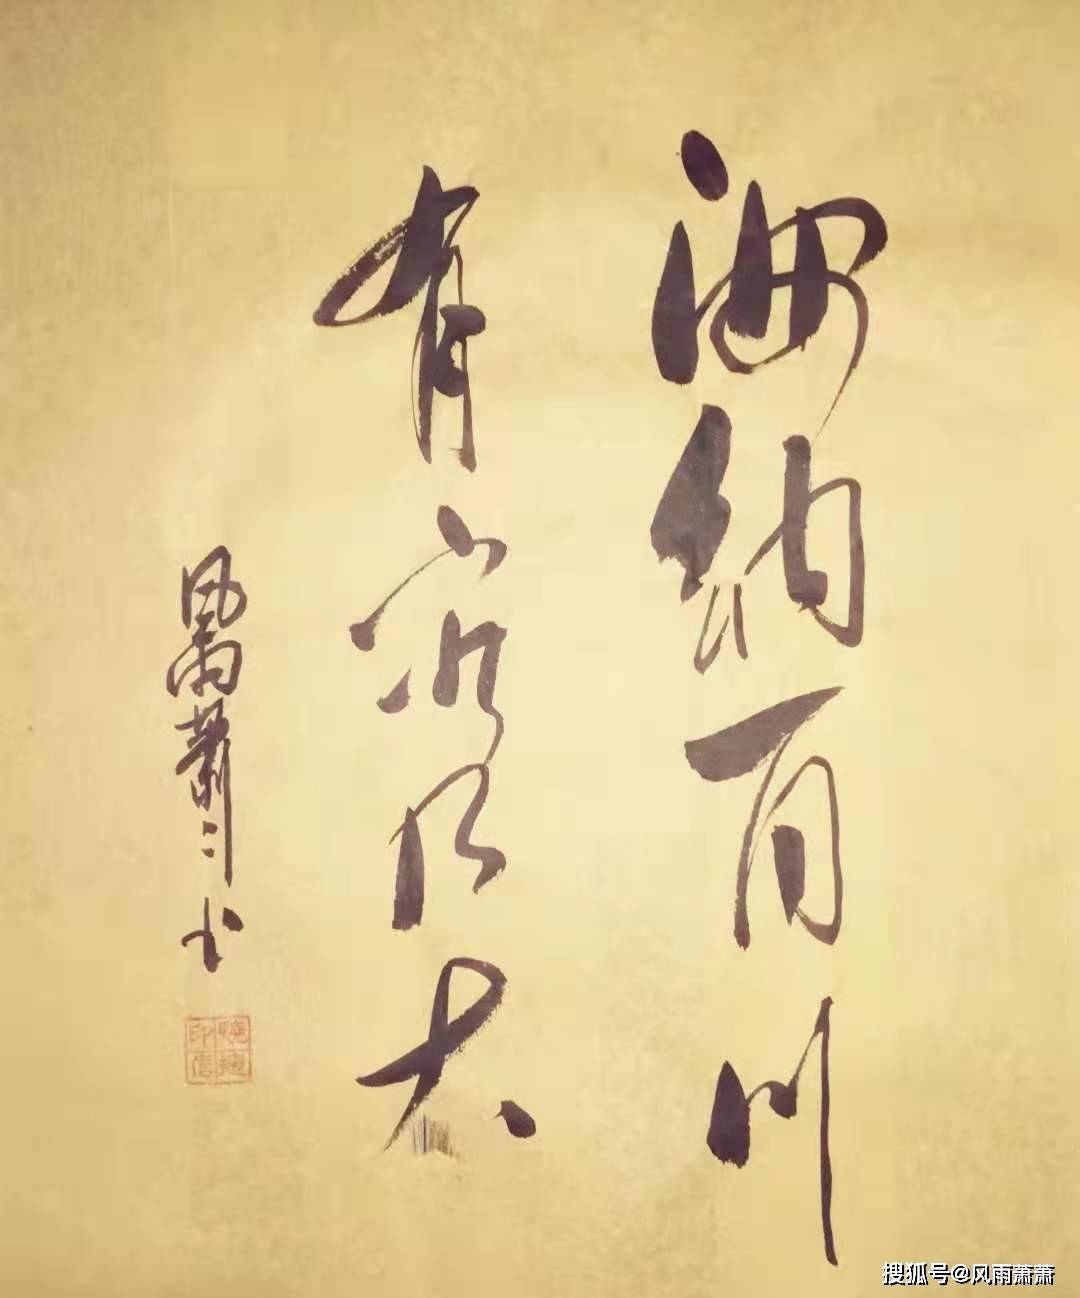 海纳百川
有容乃大
风雨萧々书
搜狐号@风雨萧萧